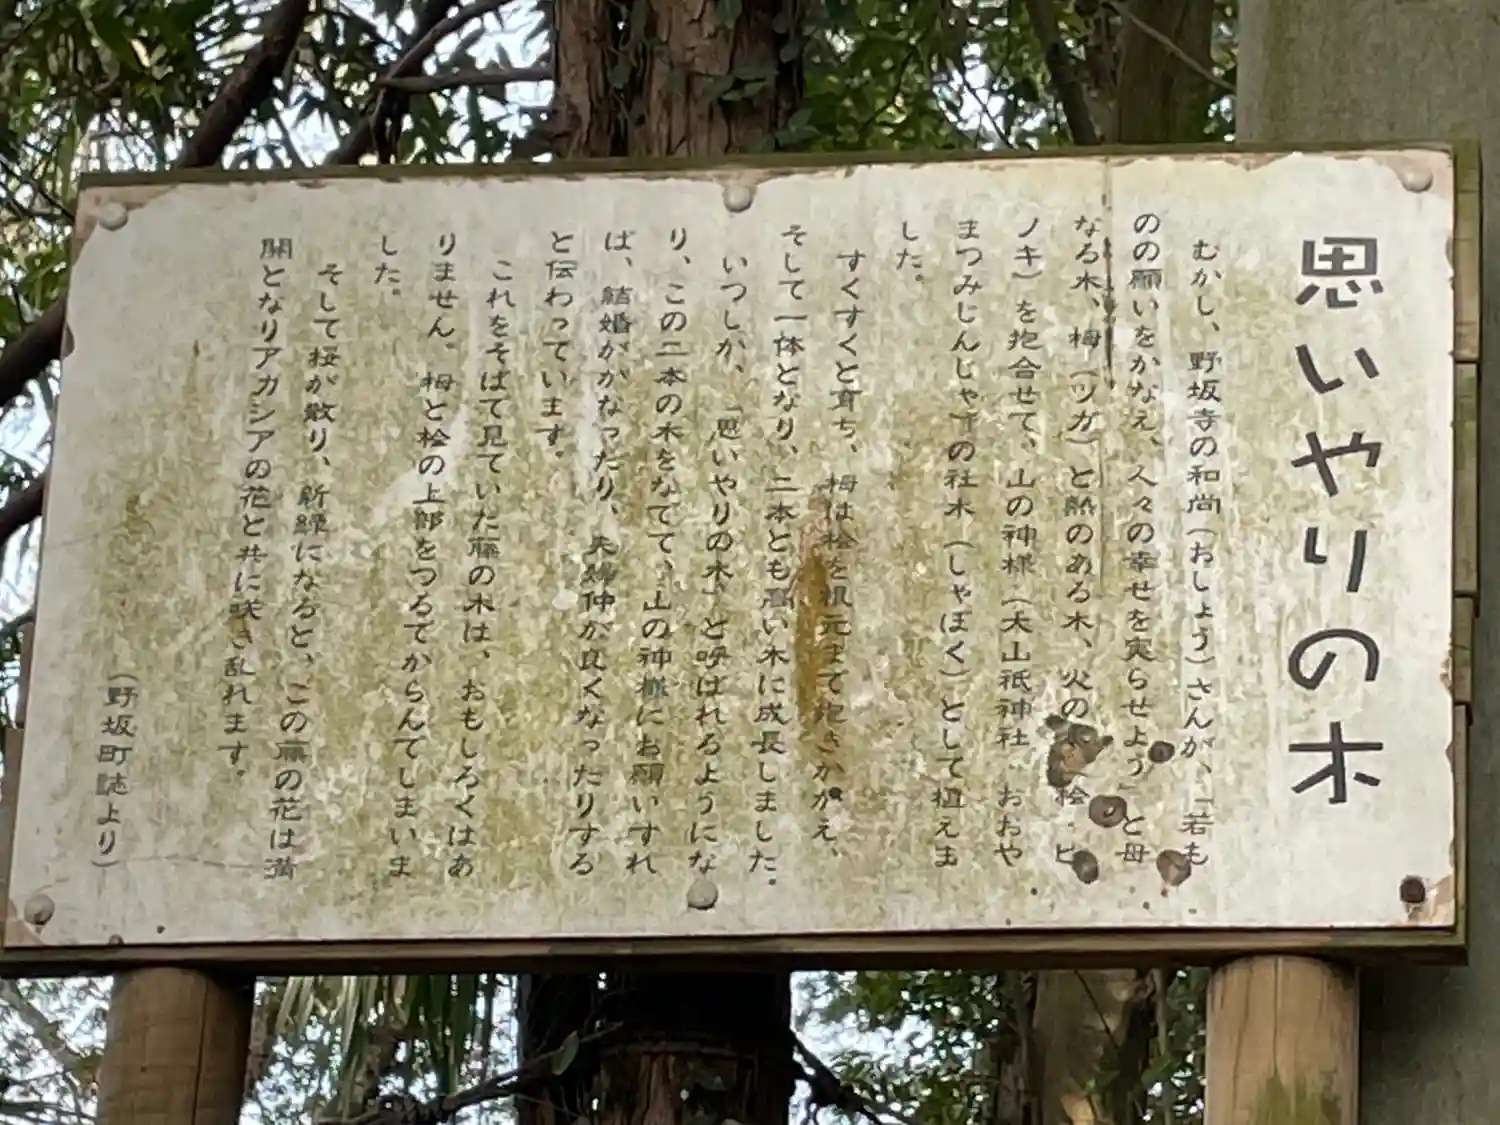 思いやりの木
むかし、野坂寺の和尚(おしょう)さんが、「若も
のの願いをかなえ、人々の幸せを実らせよう」と母
なる木、栂(ツガ)と熱のある木、火の 桧・ヒ
ノキ)を抱合せて、山の神様(大山祇神社・おおや
まつみじんじゃ)の社木(しゃぼく)として植えま
した。
すくすくと育ち、栂は桧を根元まで抱きかかえ、
そして一体となり、二本とも高い木に成長しました。
いつしか、「思いやりの木」と呼ばれるようにな
り、この二本の木をなでて、山の神様にお願いすれ
ば、結婚がかなったり、夫婦仲が良くなったりする
と伝わっています。
これをそばで見ていた藤の木は、おもしろくはあ
りません。栂と桧の上部をつるでからんでしまいま
した。
そして桜が散り、新緑になると、この藤の花は満
開となりアカシアの花と共に咲き乱れます。
(野坂町誌より)